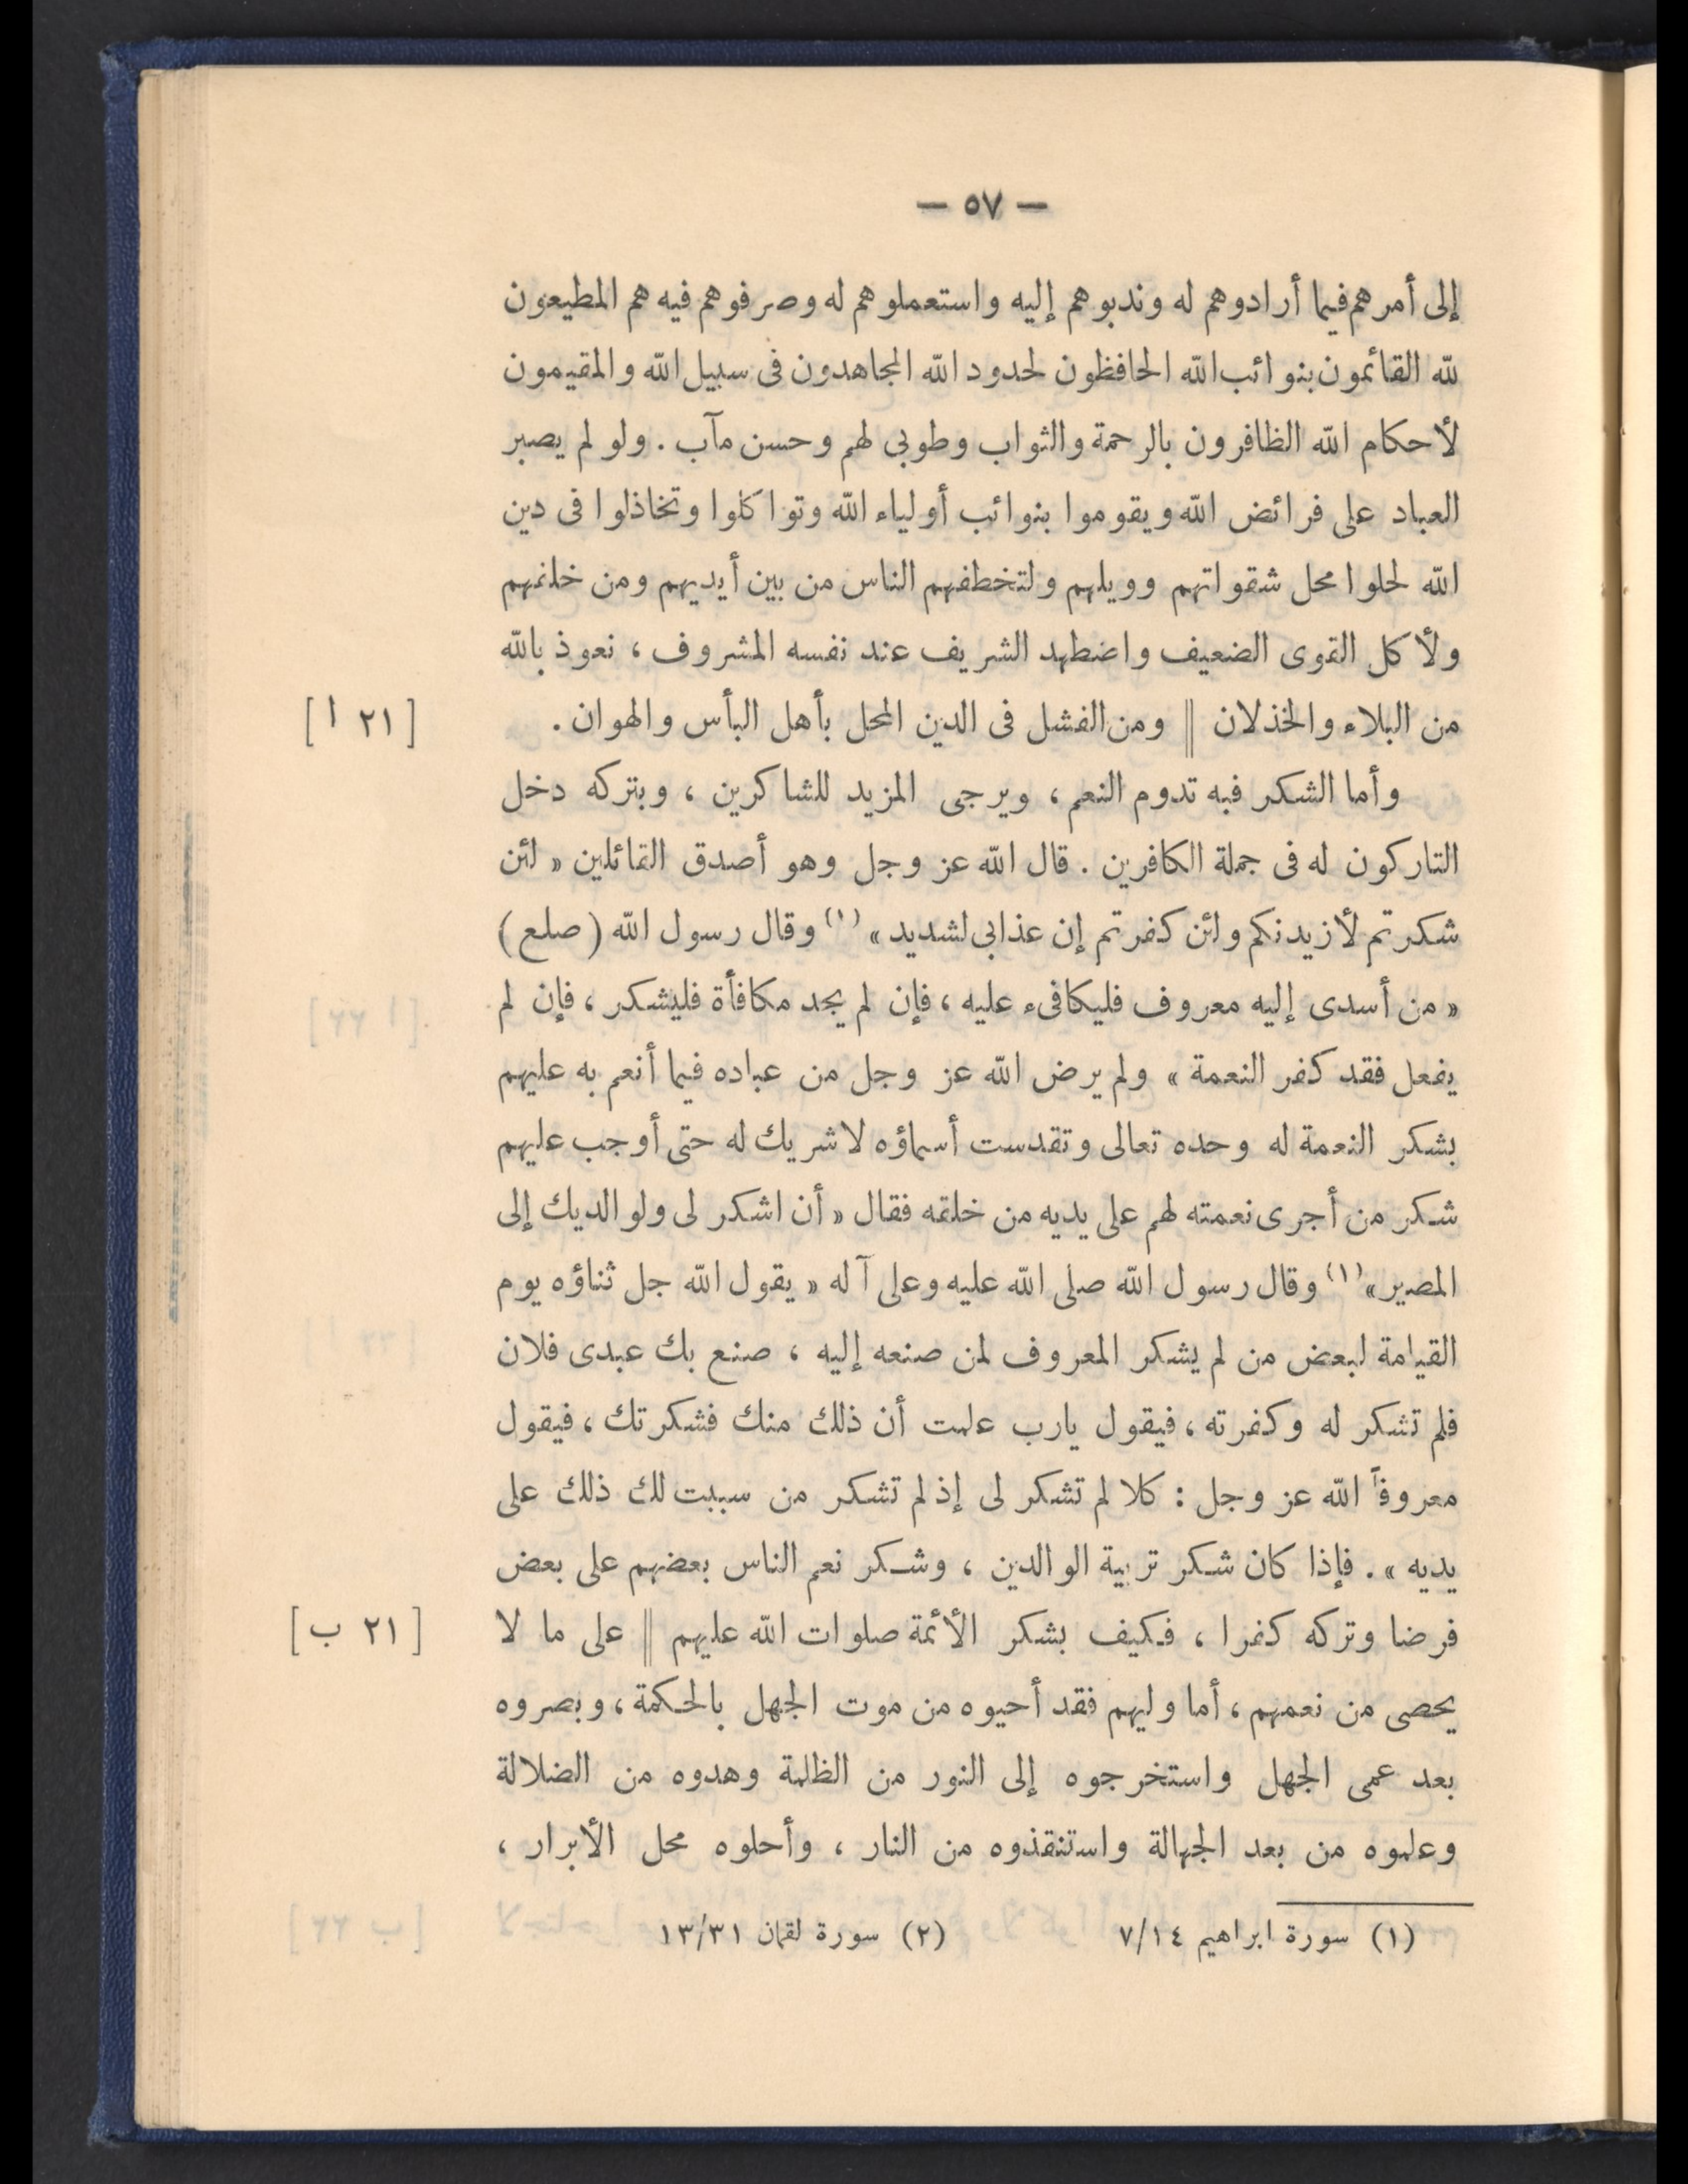 — ٥٧ —
إلى أمرهم فيما أرادوهم له وندبوهم إليه واستعملوهم له وصرفوهم فيه هم المطيعون
لله القائمون بنوائب الله الحافظون لحدود الله المجاهدون فى سبيل الله والمقيمون
لأحكام الله الظافرون بالرحمة والثواب وطوبى لهم وحسن مآب . ولو لم يصبر
العباد على فرائض الله ويقوموا بنوائب أولياء الله وتواكلوا وتخاذلوا فى دين
الله لحلوا محل شقواتهم وويلهم ولتخطفهم الناس من بين أيديهم ومن خلفهم
ولأكل القوى الضعيف واضطهد الشريف عند نفسه المشروف ، نعوذ بالله
من البلاء والخذلان || ومن الفشل فى الدين المحل بأهل البأس والهوان . [ ٢١ ا ]
وأما الشكر فبه تدوم النعم ، ويرجى المزيد للشاكرين ، وبتركه دخل
التاركون له فى جملة الكافرين . قال الله عز وجل وهو أصدق القائلين « لئن
شكرتم لأزيدنكم ولئن كفرتم إن عذابى لشديد » (١) وقال رسول الله ( صلع )
« من أسدى إليه معروف فليكافىء عليه ، فإن لم يجد مكافأة فليشكر ، فإن لم
يفعل فقد كفر النعمة » ولم يرض الله عز وجل من عباده فيما أنعم به عليهم
بشكر النعمة له وحده تعالى وتقدست أسماؤه لا شريك له حتى أوجب عليهم
شكر من أجرى نعمته لهم على يديه من خلقه فقال « أن اشكر لى ولوالديك إلى
المصير » (١) وقال رسول الله صلى الله عليه وعلى آله « يقول الله جل ثناؤه يوم
القيامة لبعض من لم يشكر المعروف لمن صنعه إليه ، صنع بك عبدى فلان
فلم تشكر له وكفرته ، فيقول يارب علمت أن ذلك منك فشكرتك ، فيقول
معروفاً الله عز وجل : كلا لم تشكر لى إذ لم تشكر من سببت لك ذلك على
يديه » . فإذا كان شكر تربية الوالدين ، وشكر نعم الناس بعضهم على بعض
فرضا وتركه كفرا ، فكيف بشكر الأئمة صلوات الله عليهم || على ما لا [ ٢١ ب ]
يحصى من نعمهم ، أما وليهم فقد أحيوه من موت الجهل بالحكمة ، وبصروه
بعد عمى الجهل واستخرجوه إلى النور من الظلمة وهدوه من الضلالة
وعلموه من بعد الجهالة واستنقذوه من النار ، وأحلوه محل الأبرار ،
(١) سورة ابراهيم ٧/١٤ (٢) سورة لقمان ١٣/٣١